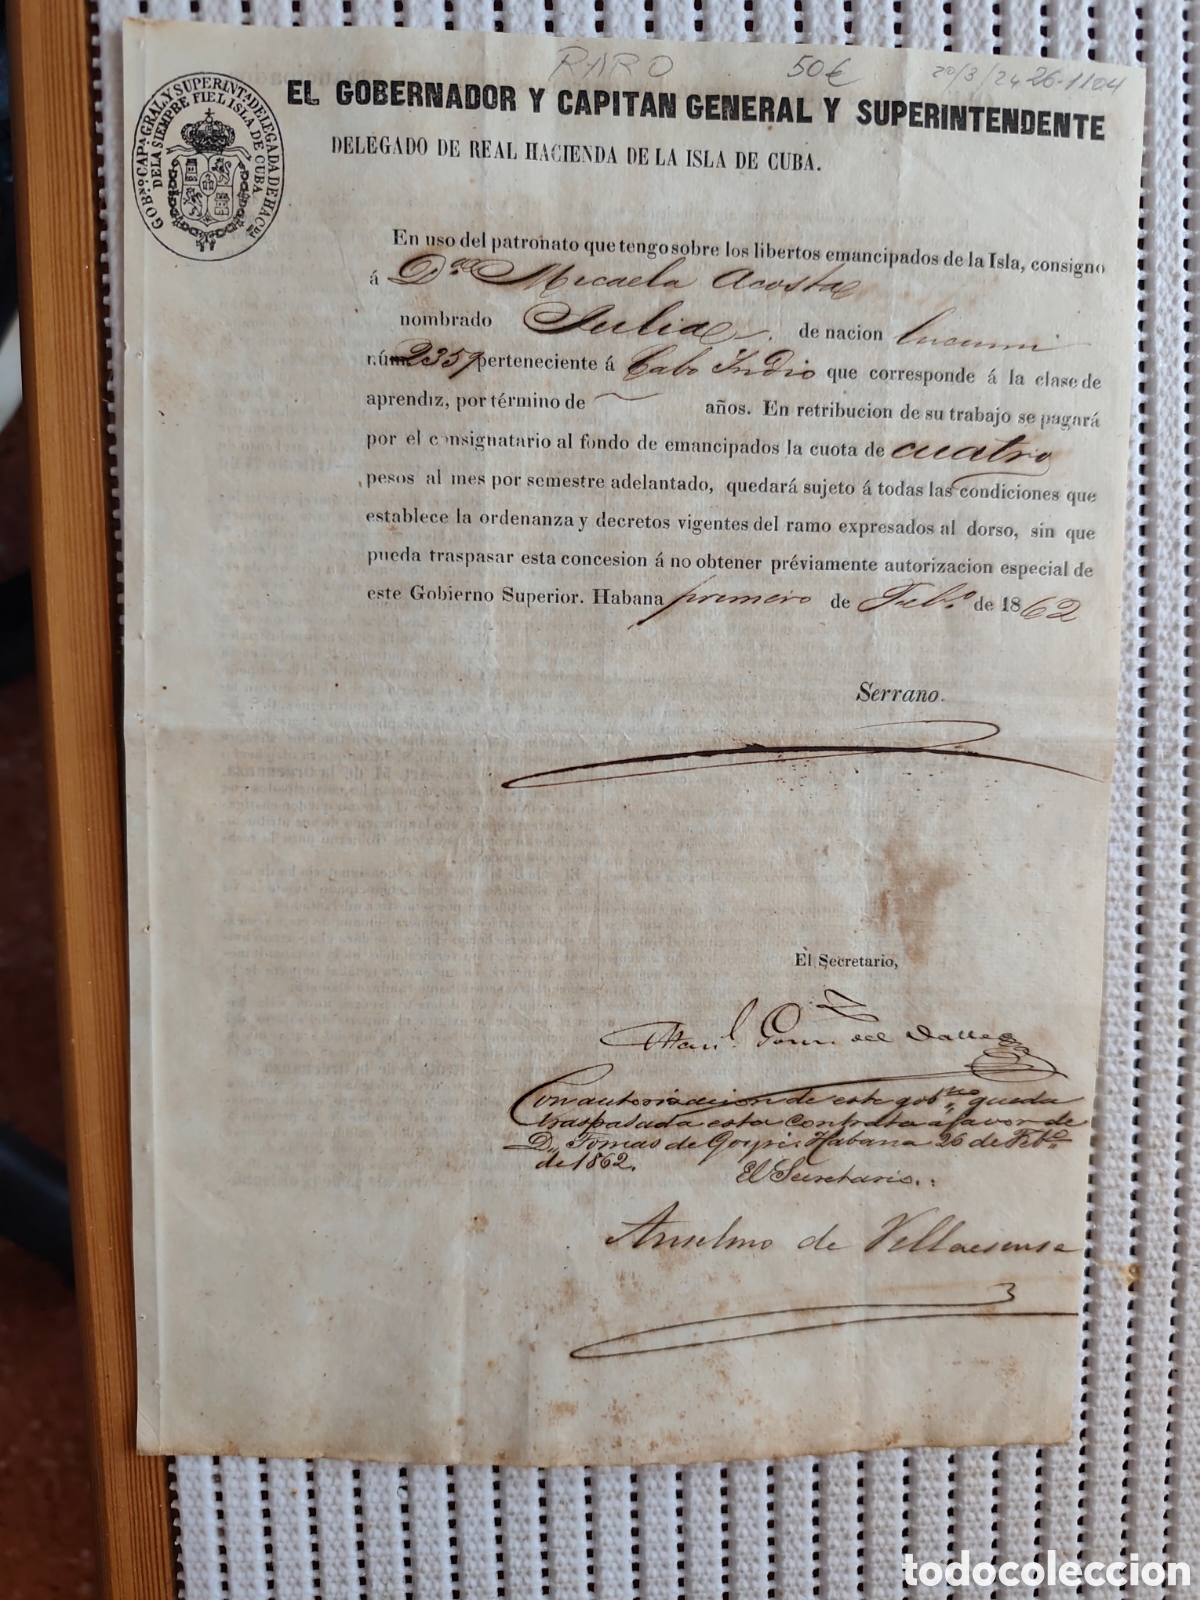 RARO 50€ 20/3/24 26-1104
GOB.NO CAP.A GRAL Y SUPERINT.A DELEGADA DE HAC.DA
DE LA SIEMPRE FIEL ISLA DE CUBA
EL GOBERNADOR Y CAPITAN GENERAL Y SUPERINTENDENTE
DELEGADO DE REAL HACIENDA DE LA ISLA DE CUBA.
En uso del patronato que tengo sobre los libertos emancipados de la Isla, consigno
á Dª Micaela Acosta
nombrado Julia de nacion lucumi
núm 2359 perteneciente á Cabo Indio que corresponde á la clase de
aprendiz, por término de años. En retribucion de su trabajo se pagará
por el consignatario al fondo de emancipados la cuota de cuatro
pesos al mes por semestre adelantado, quedará sujeto á todas las condiciones que
establece la ordenanza y decretos vigentes del ramo expresados al dorso, sin que
pueda traspasar esta concesion á no obtener préviamente autorizacion especial de
este Gobierno Superior. Habana primero de Feb.º de 1862
Serrano.
El Secretario,
del Valle
Con autorizacion de este gob.no queda
traspasada esta contrata a favor de
D.n Tomas de Habana 26 de Feb.º
de 1862.
El Secretario.
Anselmo de
todocoleccion